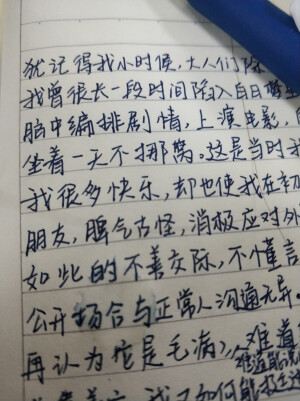 犹记得我小时候，大人们
我曾很长一段时间陷入白日
脑中编排剧情，上演电影，
坐着一天不挪窝。这是当时
我很多快乐，却也使我在初
朋友，脾气古怪，消极应对外
如此的不善交际，不懂言
公开场合与正常人沟通无异。
再认为它是毛病，难道